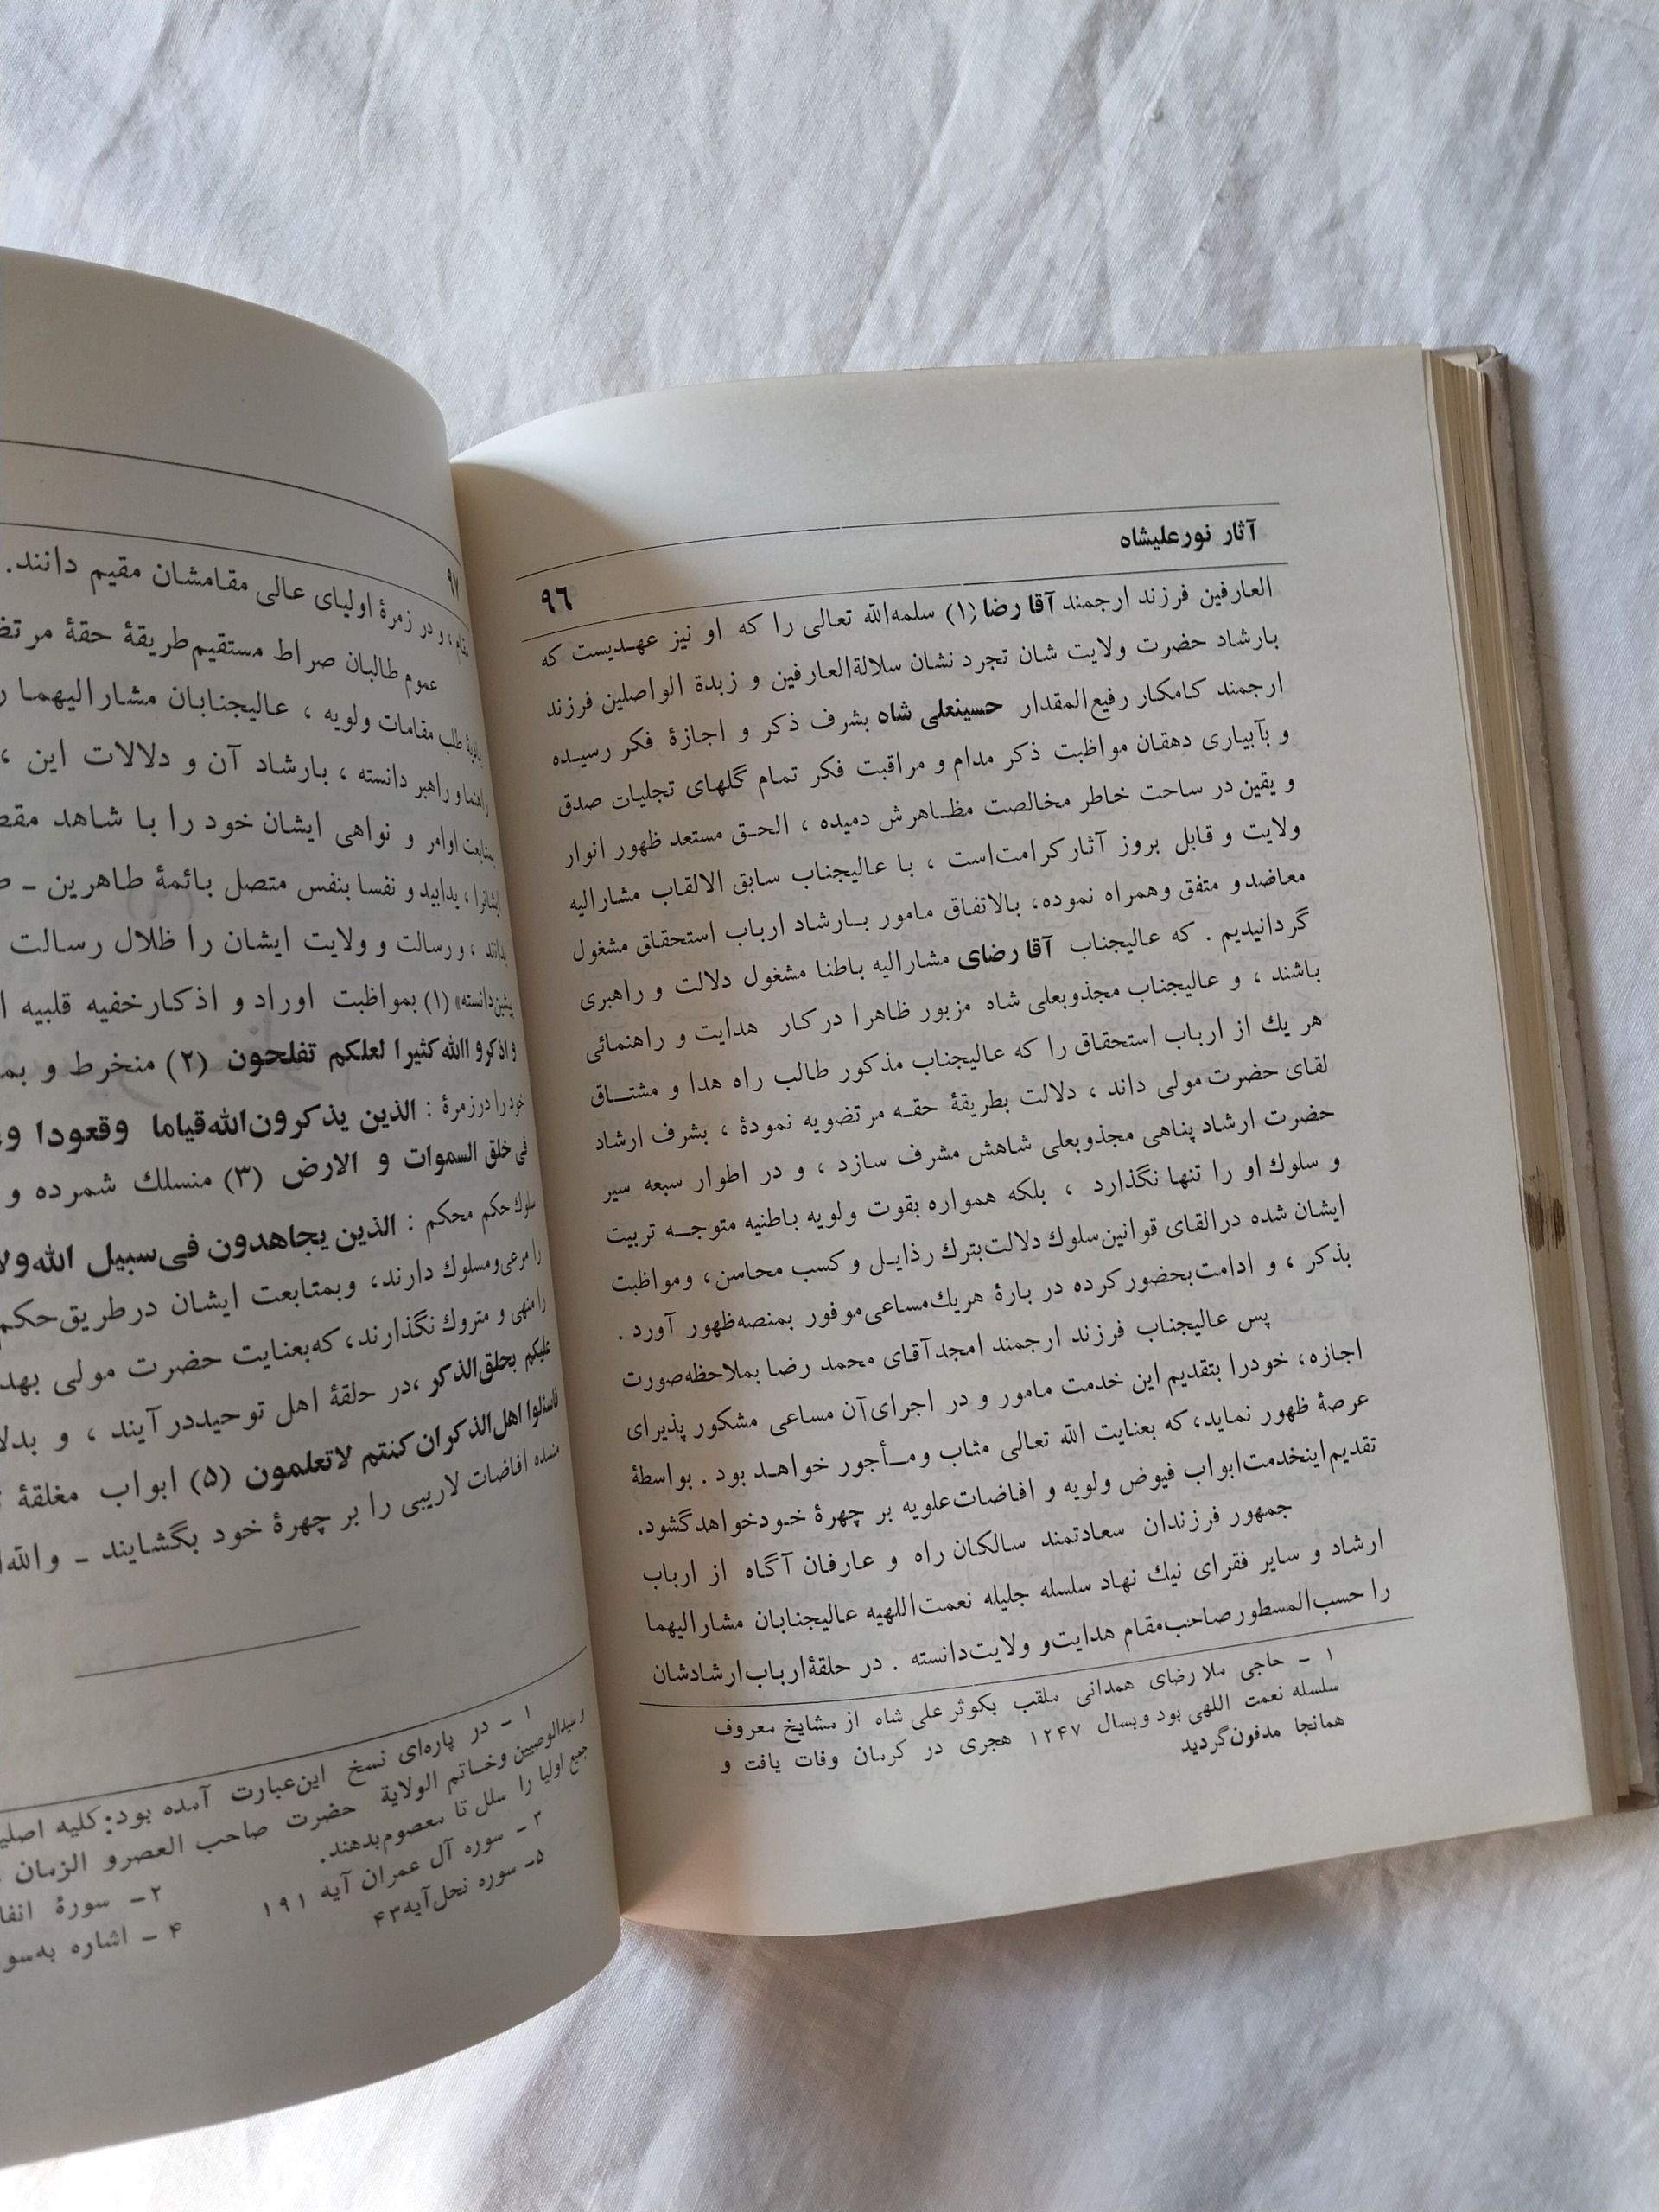 آثار نورعلیشاه
۹۶
العارفین فرزند ارجمند آقا رضا (۱) سلمه‌الله تعالی را که او نیز عهدیست که
بارشاد حضرت ولایت شان تجرد نشان سلالةالعارفین و زبدة الواصلین فرزند
ارجمند کامکار رفیع‌المقدار حسینعلی شاه بشرف ذکر و اجازهٔ فکر رسیده
و بآبیاری دهقان مواظبت ذکر مدام و مراقبت فکر تمام گلهای تجلیات صدق
و یقین در ساحت خاطر مخالصت مظاهرش دمیده ، الحق مستعد ظهور انوار
ولایت و قابل بروز آثار کرامت‌است ، با عالیجناب سابق الالقاب مشارالیه
معاضد و متفق وهمراه نموده، بالاتفاق مامور بارشاد ارباب استحقاق مشغول
گردانیدیم . که عالیجناب آقا رضای مشارالیه باطنا مشغول دلالت و راهبری
باشند ، و عالیجناب مجذوبعلی شاه مزبور ظاهرا در کار هدایت و راهنمائی
هر یك از ارباب استحقاق را که عالیجناب مذکور طالب راه هدا و مشتاق
لقای حضرت مولی داند ، دلالت بطریقهٔ حقه مرتضویه نمودهٔ ، بشرف ارشاد
حضرت ارشاد پناهی مجذوبعلی شاهش مشرف سازد ، و در اطوار سبعه سیر
و سلوك او را تنها نگذارد ، بلکه همواره بقوت ولویه باطنیه متوجه تربیت
ایشان شده درالقای قوانین سلوك دلالت‌بترك رذایل و کسب محاسن، ومواظبت
بذکر ، و ادامت‌بحضور کرده در بارهٔ هریك‌مساعی‌موفور بمنصه‌ظهور آورد .
پس عالیجناب فرزند ارجمند امجدآقای محمد رضا بملاحظه‌صورت
اجازه، خودرا بتقدیم این خدمت مامور و در اجرای‌آن مساعی مشکور پذیرای
عرصهٔ ظهور نماید، که بعنایت الله تعالی مثاب ومأجور خواهد بود . بواسطهٔ
تقدیم‌اینخدمت‌ابواب فیوض ولویه و افاضات‌علویه بر چهرهٔ خودخواهدگشود.
جمهور فرزندان سعادتمند سالکان راه و عارفان آگاه از ارباب
ارشاد و سایر فقرای نیك نهاد سلسله جلیله نعمت‌اللهیه عالیجنابان مشارالیهما
را حسب‌المسطورصاحب‌مقام هدایت‌و ولایت‌دانسته . در حلقهٔ‌ارباب‌ارشادشان
۱ ــ حاجی ملا رضای همدانی ملقب بکوثر علی شاه از مشایخ معروف
سلسله نعمت اللهی بود وبسال ۱۲۴۷ هجری در کرمان وفات یافت و
همانجا مدفون‌گردید
۹۷
و در زمرهٔ اولیای عالی مقامشان مقیم دانند.
عموم طالبان صراط مستقیم‌طریقهٔ حقهٔ
طلب مقامات ولویه ، عالیجنابان مشارالیهما
راهنما و راهبر دانسته ، بارشاد آن و دلالات این ،
اوامر و نواهی ایشان خود را با شاهد
بدانید و نفسا بنفس متصل بائمهٔ طاهرین ـ
، و رسالت و ولایت ایشان را ظلال رسالت
(۱) بمواظبت اوراد و اذکار خفیه قلبیه
و اذکروا الله کثیرا لعلکم تفلحون (۲) منخرط و
خود را درزمرهٔ : الذین یذکرون‌الله‌قیاما وقعودا
فی خلق السموات و الارض (۳) منسلك شمرده و
سلوك حکم محکم : الذین یجاهدون فی‌سبیل الله
را مرعی‌ومسلوك دارند، وبمتابعت ایشان درطریق‌حکم
را منهی و متروك نگذارند، که‌بعنایت حضرت مولی
علیکم بحلق‌الذکر ،در حلقهٔ اهل توحیددرآیند ، و
فاسئلوا اهل‌الذکران‌کنتم لاتعلمون (۵) ابواب مغلقهٔ
افاضات لاریبی را بر چهرهٔ خود بگشایند ـ
۱ ــ در پاره‌ای نسخ این‌عبارت آمده بود: کلیه
و سیدالوصیین وخاتم الولایة حضرت صاحب العصرو الزمان
جمیع اولیا را سلل تا معصوم‌بدهند.
۲ــ سورهٔ
۳ ــ سوره آل عمران آیه ۱۹۱
۴ ــ اشاره
۵ــ سوره نحل‌آیه۴۳